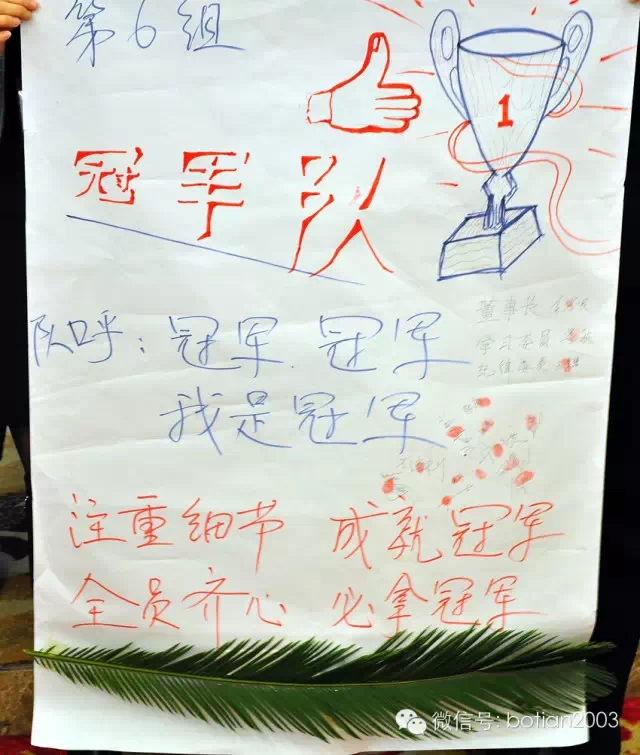 第6组
1
冠军队
董事长
学习委员
纪律委员
队呼：冠军 冠军
我是冠军
注重细节 成就冠军
全员齐心 必拿冠军
微信号: botian2003